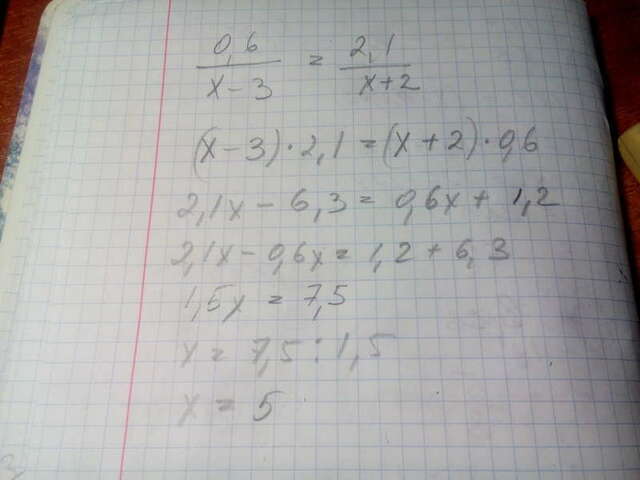 0,6 / x-3 = 2,1 / x+2
(x-3)·2,1=(x+2)·0,6
2,1x-6,3=0,6x+1,2
2,1x-0,6x=1,2+6,3
1,5x=7,5
x=7,5:1,5
x=5